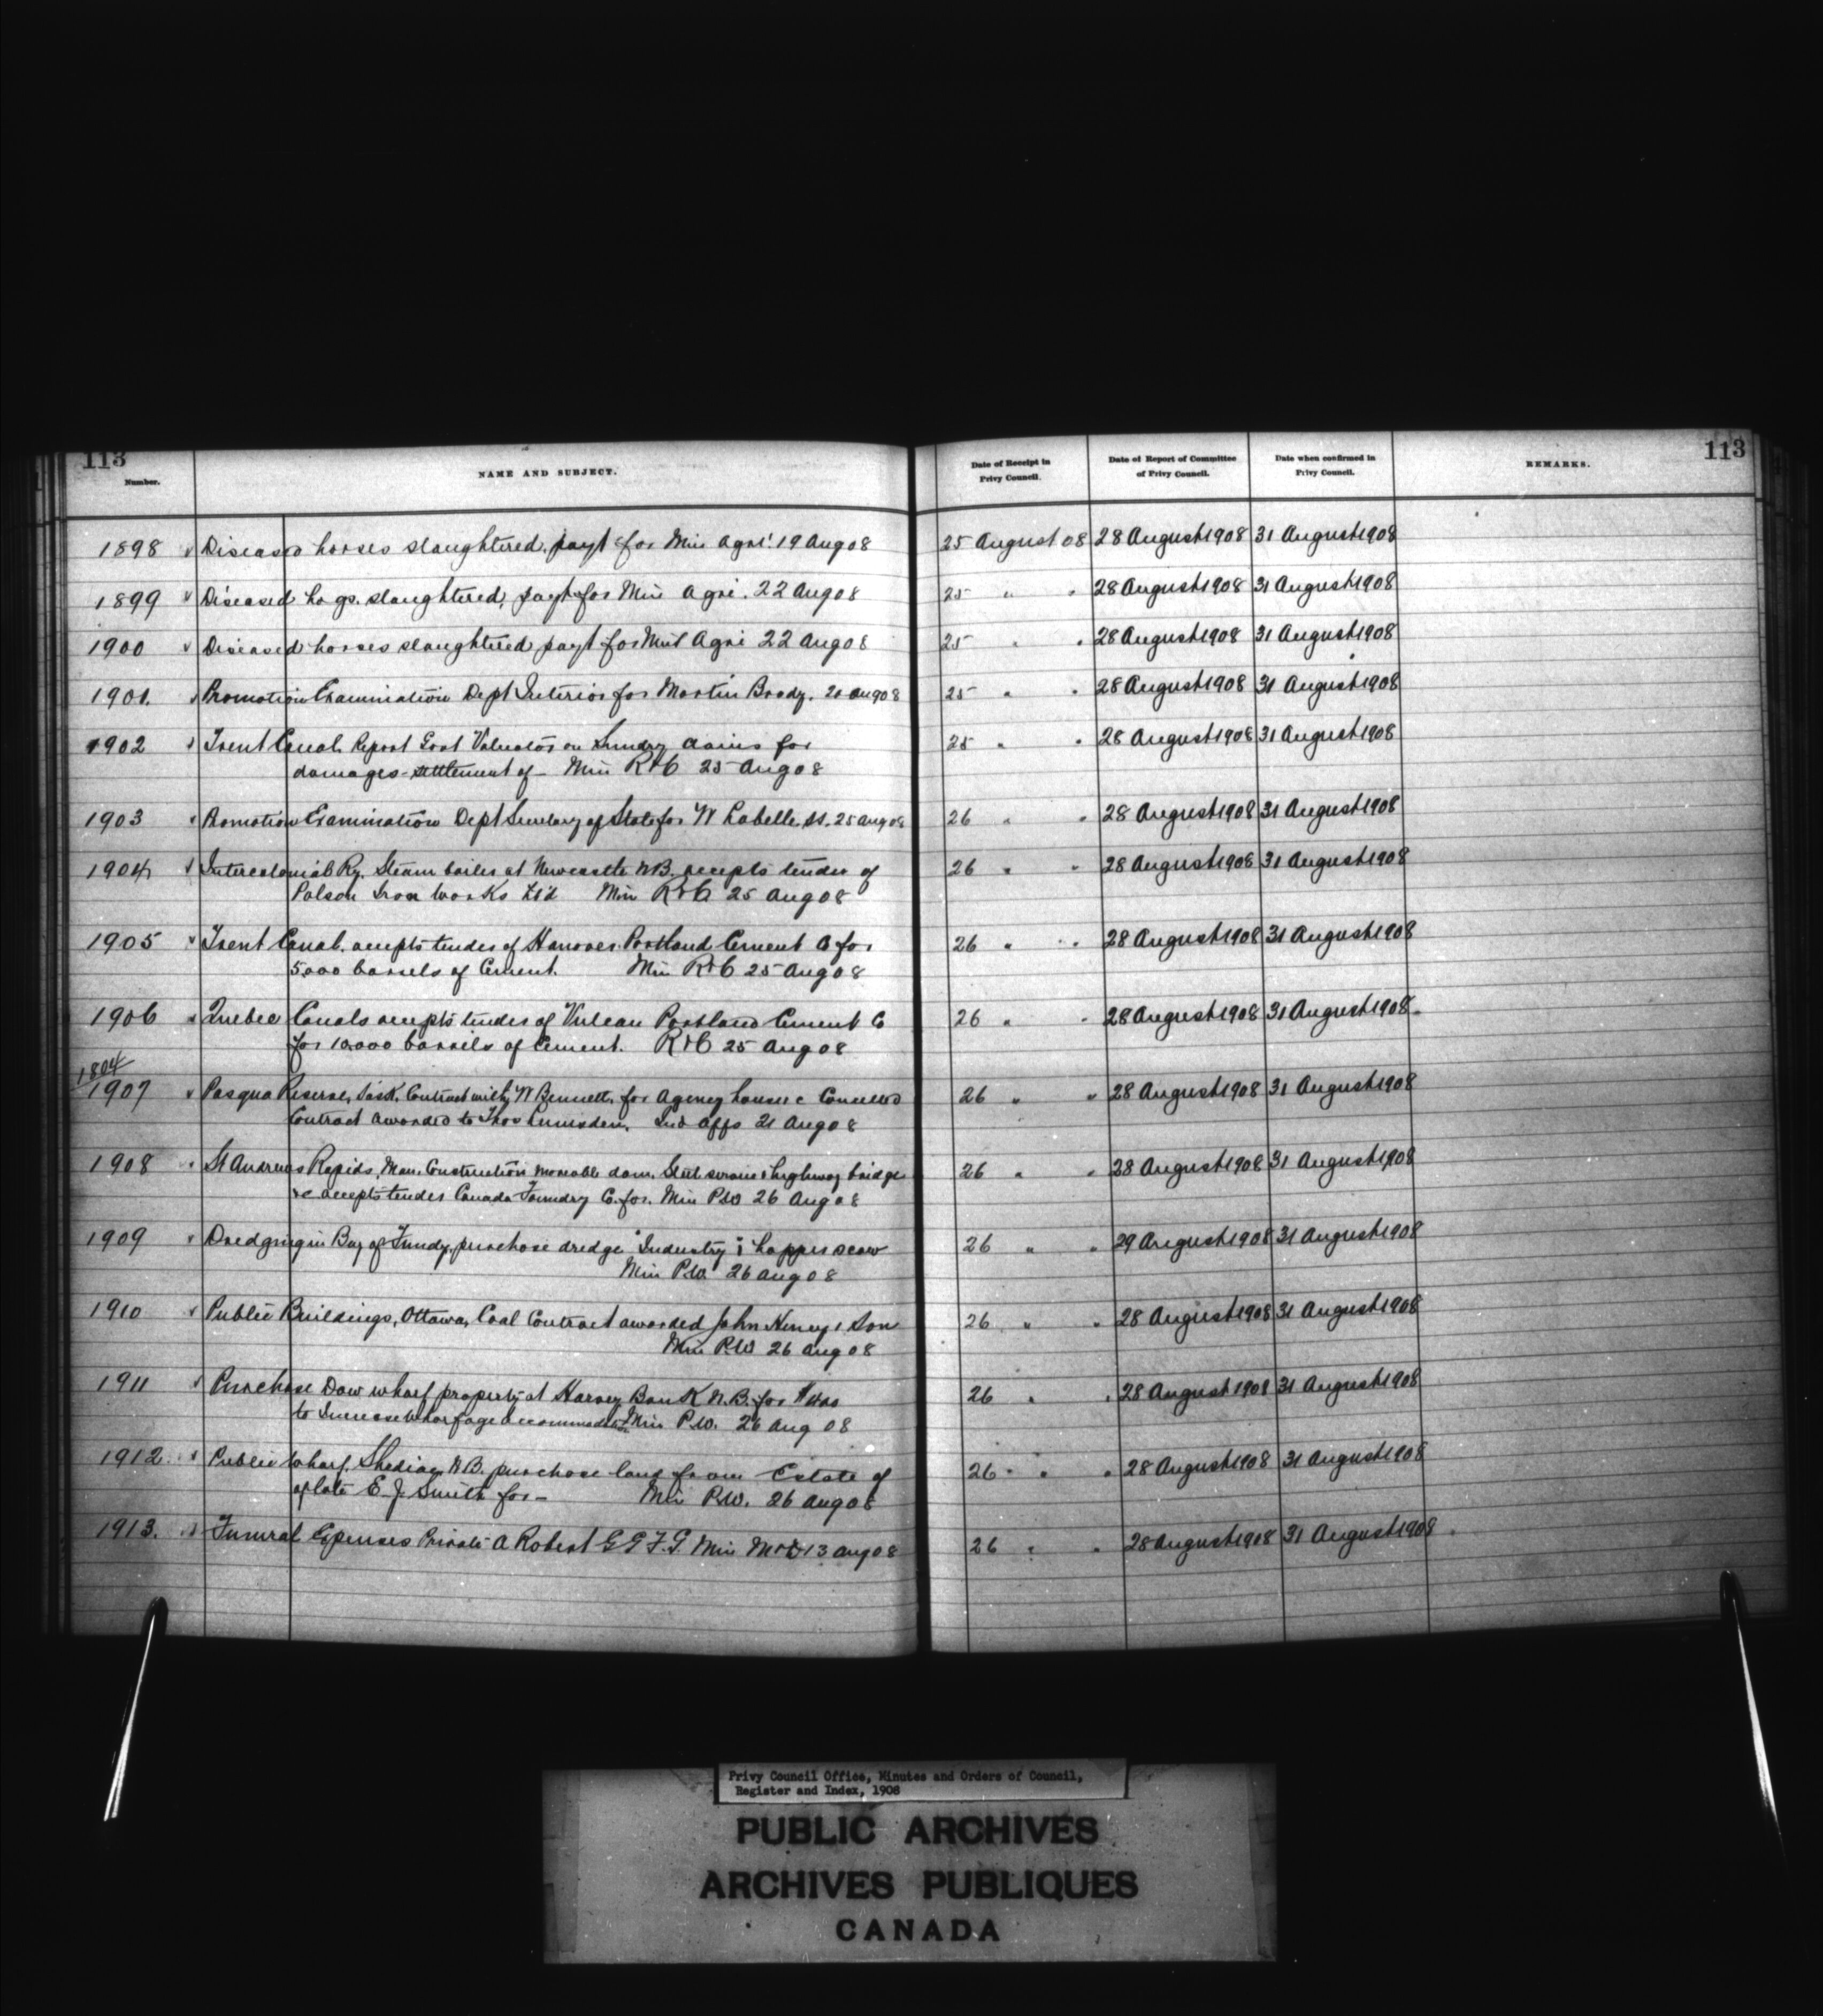 113
113
Number.
NAME AND SUBJECT.
Date of Receipt in Privy Council.
Date of Report of Committee of Privy Council.
Date when confirmed in Privy Council.
REMARKS.
1898 Diseased horses slaughtered, payt for Min Agri. 19 Aug 08 25 August 08 28 August 1908 31 August 1908
1899 Diseased hogs. slaughtered, payt for Min Agri. 22 Aug 08 25 " " 28 August 1908 31 August 1908
1900 Diseased horses slaughtered payt for Min Agri 22 Aug 08 25 " " 28 August 1908 31 August 1908
1901. Promotion Examination Dept Interior for Martin Brody. 20 Aug 08 25 " " 28 August 1908 31 August 1908
1902 Trent Canal. Report Govt Valuator on Sundry claims for 25 " " 28 August 1908 31 August 1908
damages - settlement of - Min R&C 25 Aug 08
1903 Promotion Examination Dept Secretary of State for W Labelle. SS. 25 Aug 08 26 " " 28 August 1908 31 August 1908
1904 Intercolonial Ry. Steam boiler at Newcastle N.B. accepts tender of 26 " " 28 August 1908 31 August 1908
Polson Iron Works Ltd Min R&C 25 Aug 08
1905 Trent Canal. accepts tender of Hanover Portland Cement Co for 26 " " 28 August 1908 31 August 1908
5000 barrels of Cement. Min R&C 25 Aug 08
1906 Quebec Canals accepts tender of Vulcan Portland Cement Co 26 " " 28 August 1908 31 August 1908
for 10000 barrels of Cement. R&C 25 Aug 08
1804
1907 Pasqua Reserve, Sask. Contract with W Bennett, for Agency house &c Cancelled 26 " " 28 August 1908 31 August 1908
Contract awarded to Thos Lumsden. Ind Affs 21 Aug 08
1908 St Andrews Rapids, Man. Construction moveable dam, Steel service & highway bridge 26 " " 28 August 1908 31 August 1908
&c accepts tender Canada Foundry Co. for. Min P.W 26 Aug 08
1909 Dredging in Bay of Fundy, purchase dredge "Industry" & hopper scow 26 " " 29 August 1908 31 August 1908
Min P.W. 26 Aug 08
1910 Public Buildings, Ottawa, Coal Contract awarded John Heney & Son 26 " " 28 August 1908 31 August 1908
Min P.W 26 Aug 08
1911 Purchase Dow wharf property at Harvey Bank N.B. for 26 " " 28 August 1908 31 August 1908
to Increase wharfage accommodation Min P.W. 26 Aug 08
1912. Public Wharf. Shediac N.B. purchase land from Estate of 26 " " 28 August 1908 31 August 1908
of late E. J. Smith for - Min P.W. 26 Aug 08
1913. Funeral Expenses Private A Robert G G F G. Min M&D 13 Aug 08 26 " " 28 August 1908 31 August 1908
Privy Council Office, Minutes and Orders of Council,
Register and Index, 1908
PUBLIC ARCHIVES
ARCHIVES PUBLIQUES
CANADA